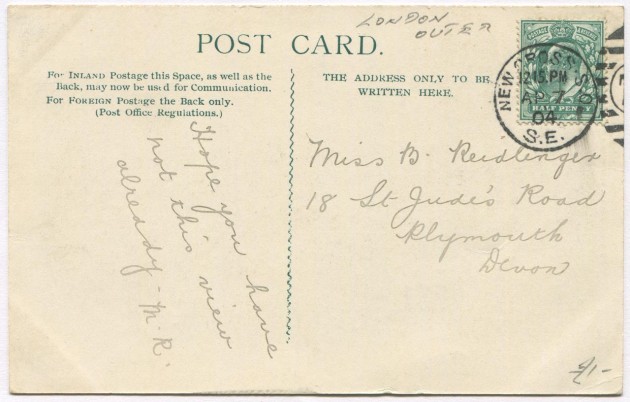 LONDON
OUTER
POST CARD.
For INLAND Postage this Space, as well as the
Back, may now be used for Communication.
For FOREIGN Postage the Back only.
(Post Office Regulations.)
THE ADDRESS ONLY TO BE
WRITTEN HERE.
POSTAGE
HALF PENNY
NEW CROSS
12.15. PM
AP
04
S.E.
Hope you have
not this view
already - M.R.
Miss B. Reidlinger
18 St Jude's Road
Plymouth
Devon
£1-